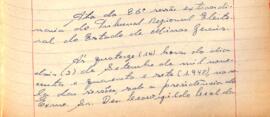 Ata da 86ª sessão extraordi-
naria do Tribunal Regional Eleito-
ral do Estado de Minas Gerais.
Ás quatorze (14) horas do dia
dois (2) de Setembro de mil nove-
centos e quarenta e sete (1947), na
sala das sessões, sob a presidencia do
Exmo. Sr. Des. Leovigildo Leal da